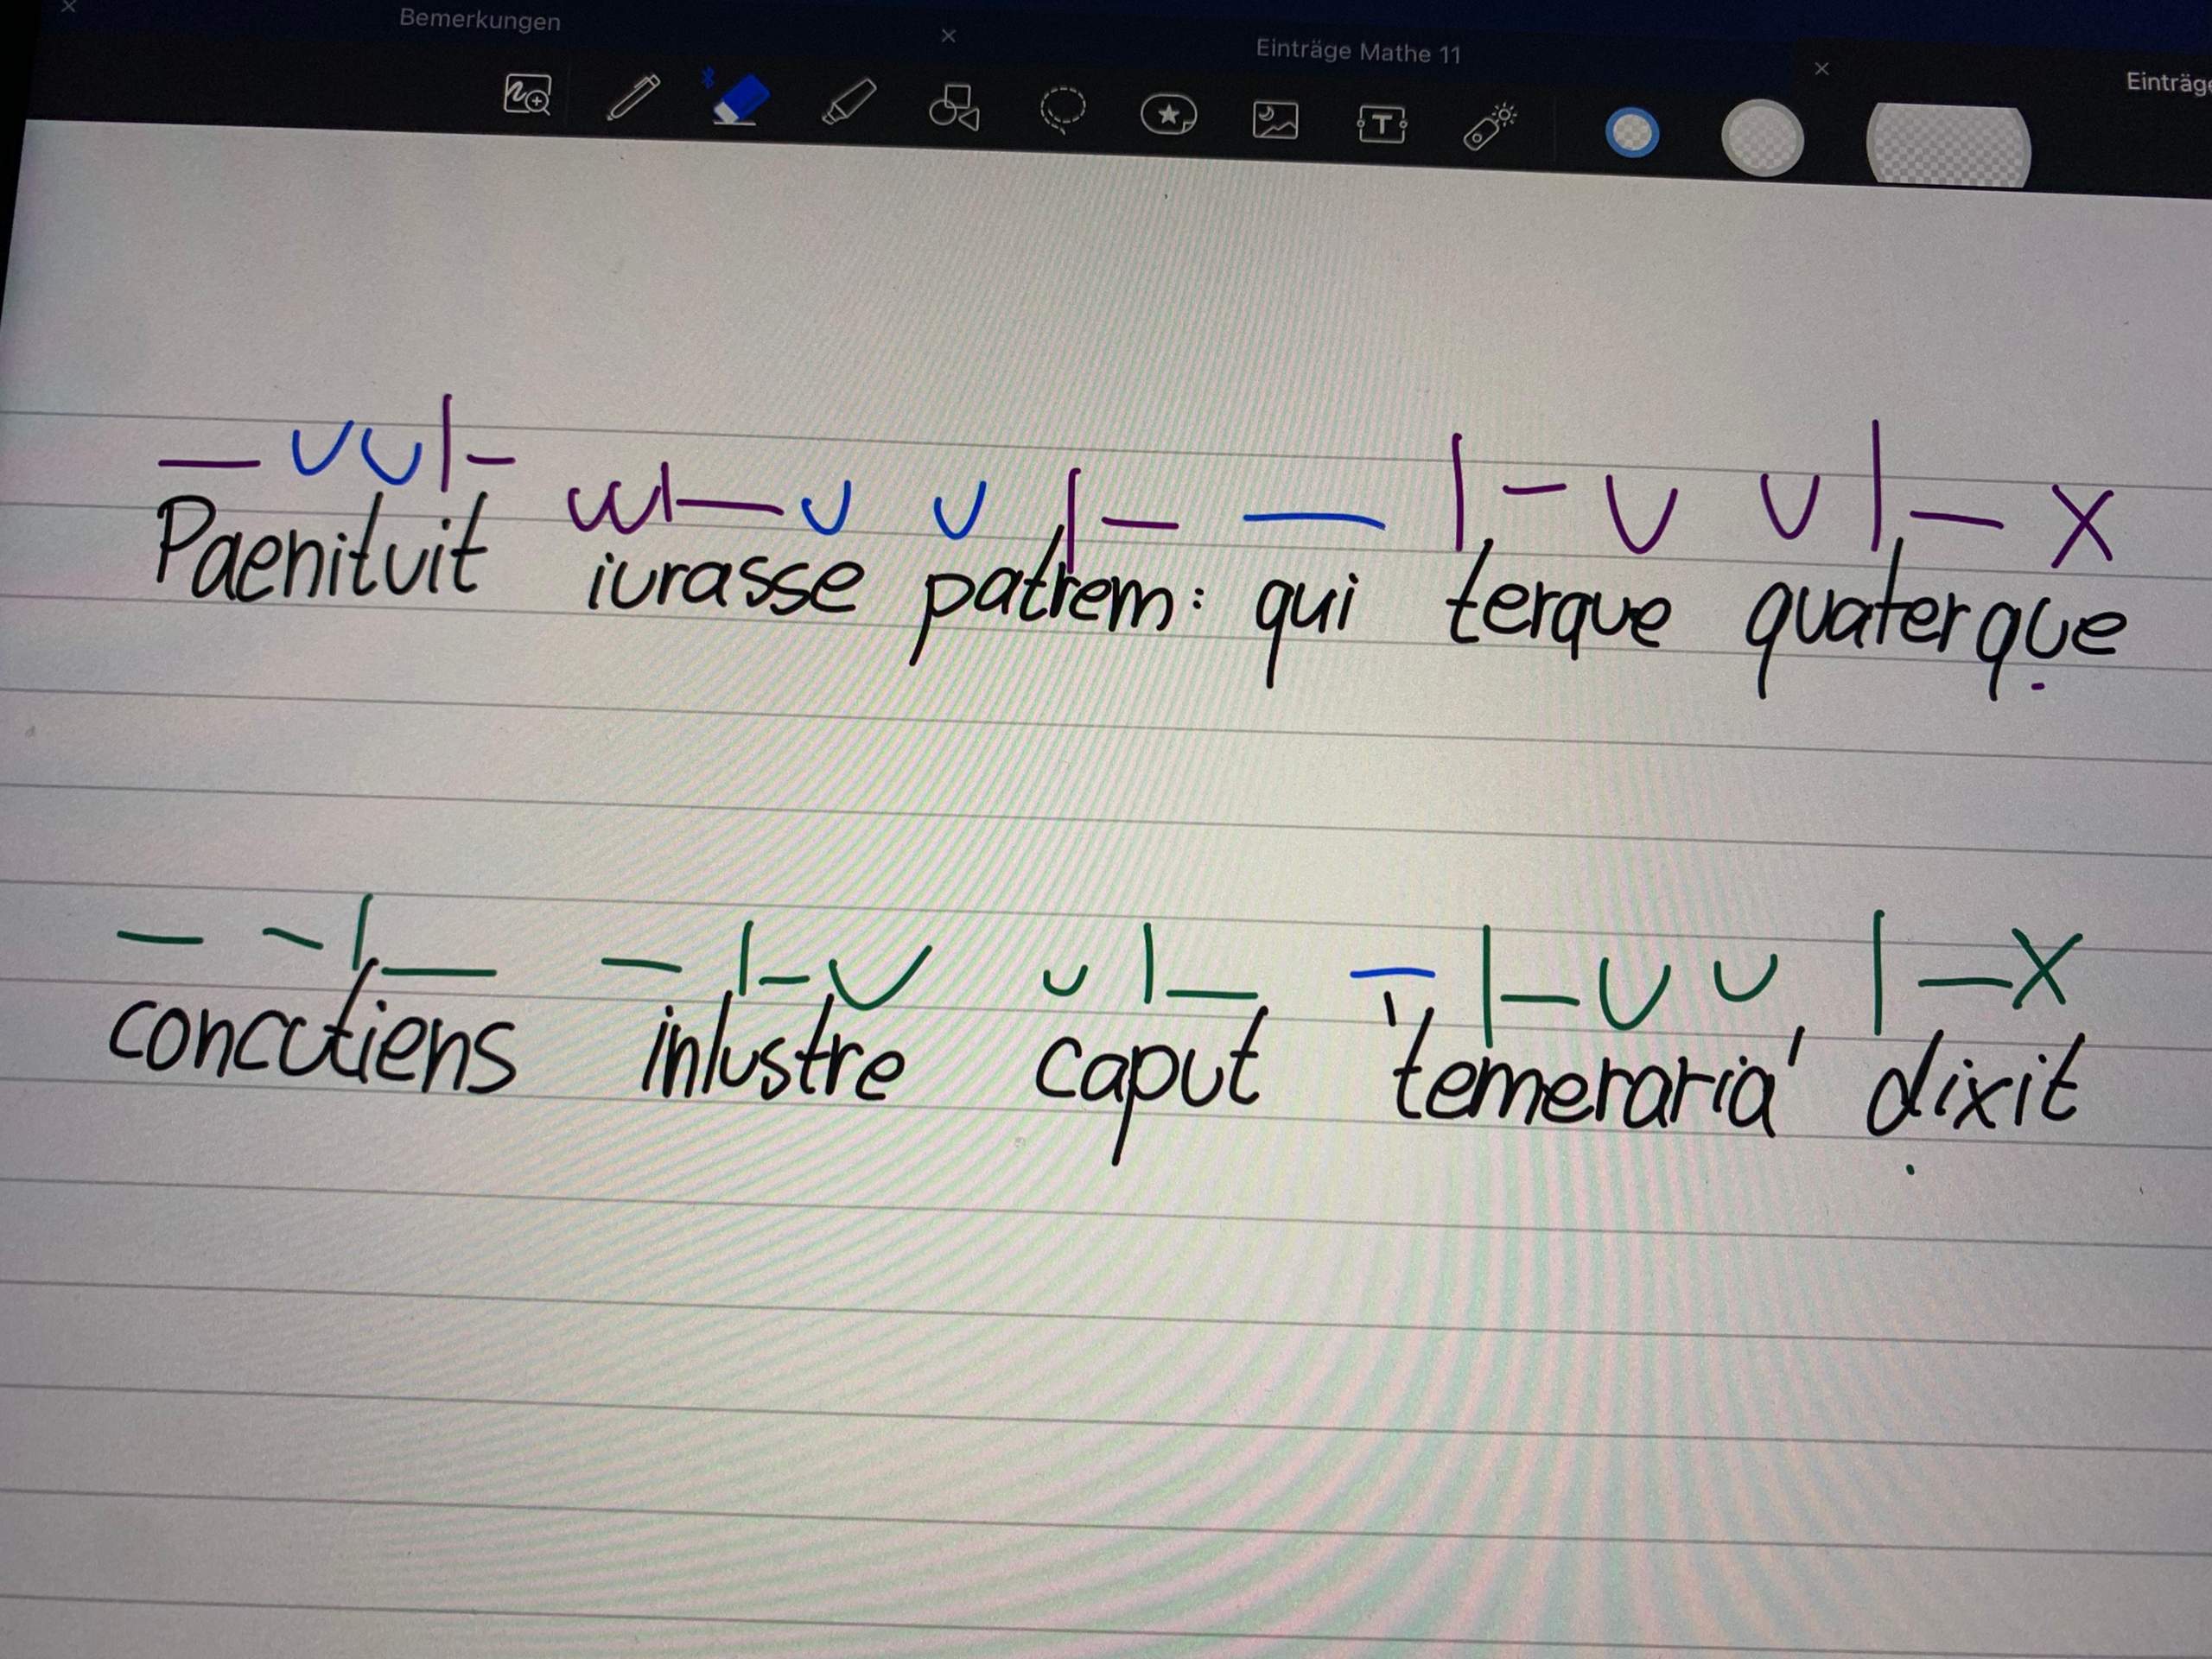 Bemerkungen
Einträge Mathe 11
Einträge
— ∪ ∪ | — ∪∪ | — ∪ ∪ | — — | — ∪ ∪ | — X
Paenituit iurasse patrem: qui terque quaterque
— — | — — | — ∪ ∪ | — — | — ∪ ∪ | — X
concutiens inlustre caput 'temeraria' dixit